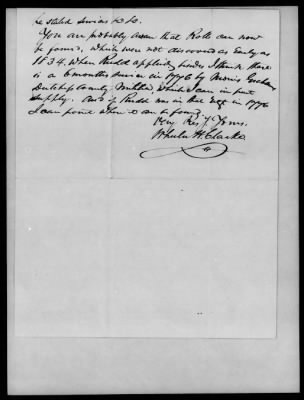 be stated services &c &c.
You are probably aware that Rolls can now
be found, which were not discovered as Early as
1834. when Rudd applied, besides I think there
is a 6 months service in 1776 by Morris Graham
Dutchess County Militia, which I can in part
supply. And if Rudd was in that Regt in 1776
I can prove where it can be found
Very Resy Yours.
H. Clarke